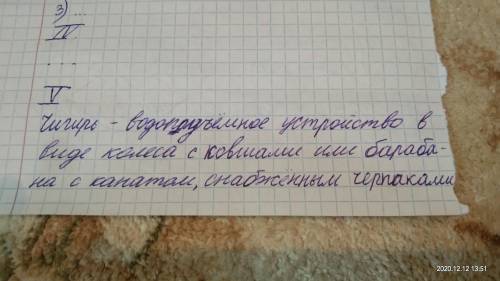 3) ...
IV
...
V
Чигирь - водоподъёмное устройство в
виде колеса с ковшами или бараба-
на с канатом, снабжённым черпаками
2020.12.12 13:51